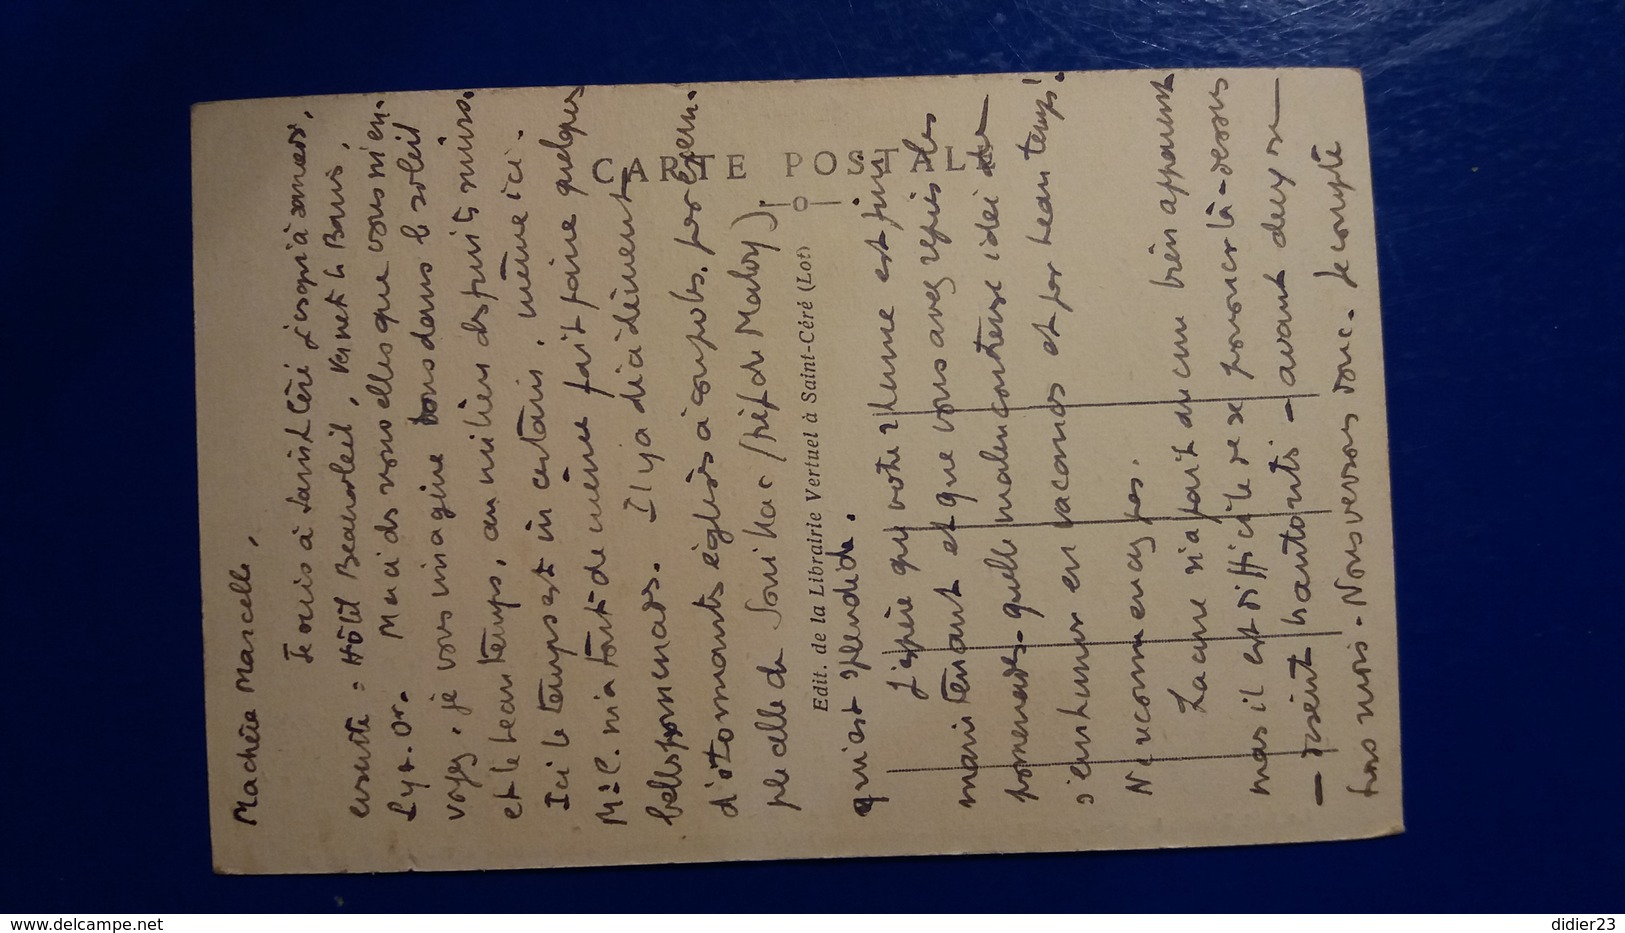 Ma chère Marcelle,
Je suis à Saint Céré jusqu'à samedi,
ensuite : Hôtel Beausoleil, Vernet les Bains,
Pyr. Or.
Merci de vos nouvelles que vous m'en-
voyez, je vous imagine tous dans le soleil
et le beau temps, au milieu des fruits mûrs.
Ici le temps est incertain, même ici.
M. C. m'a tout de même fait faire quelques
belles promenades. Il y a décidément
d'étonnantes églises à coupoles, par exem-
ple celle de Souillac (près du Maloy)
qui est splendide.
J'espère que votre rhume est fini
maintenant et que vous avez repris les
promenades. quelle malencontreuse idée de
s'enrhumer en vacances et par beau temps!
Ne recommencez pas.
La cure n'a fait aucun bien apparent
mais il est difficile de se prononcer là-dessus
— disent les – avant deux ou
trois mois. Nous verrons donc. Je compte
CARTE POSTALE
Edit. de la Librairie Vertuel à Saint-Céré (Lot)
didier23